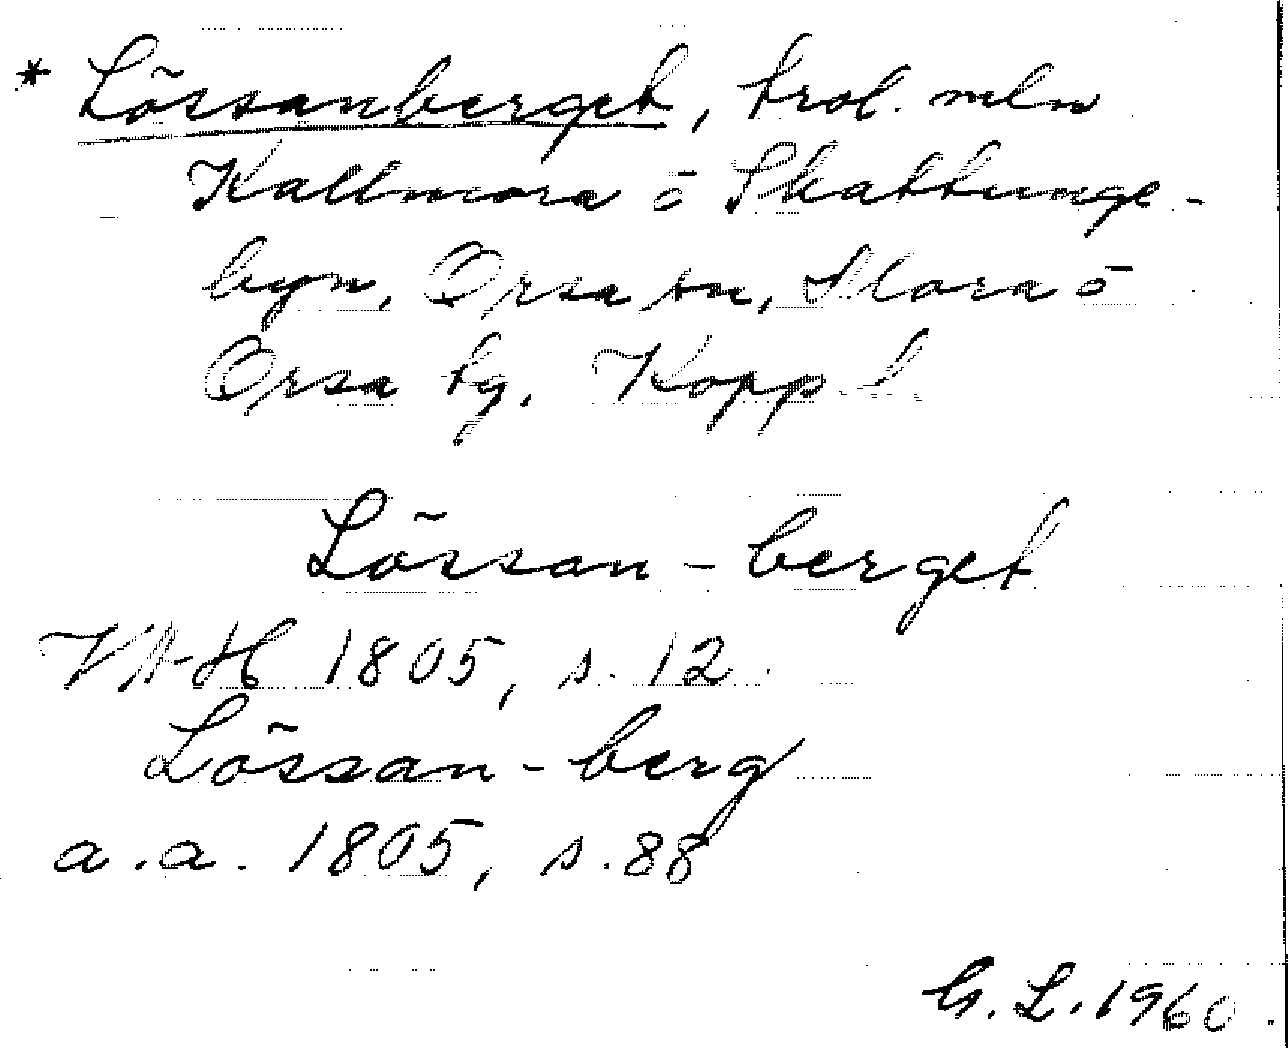 * Lössanberget, trol. mln
Kallmora o Skattunge-
byn, Orsa sn, Mora o
Orsa tg, Kopp l
Lössan-berget
VA-H 1805, s. 12.
Lössan-berg
a.a. 1805, s. 88
G. L. 1960.